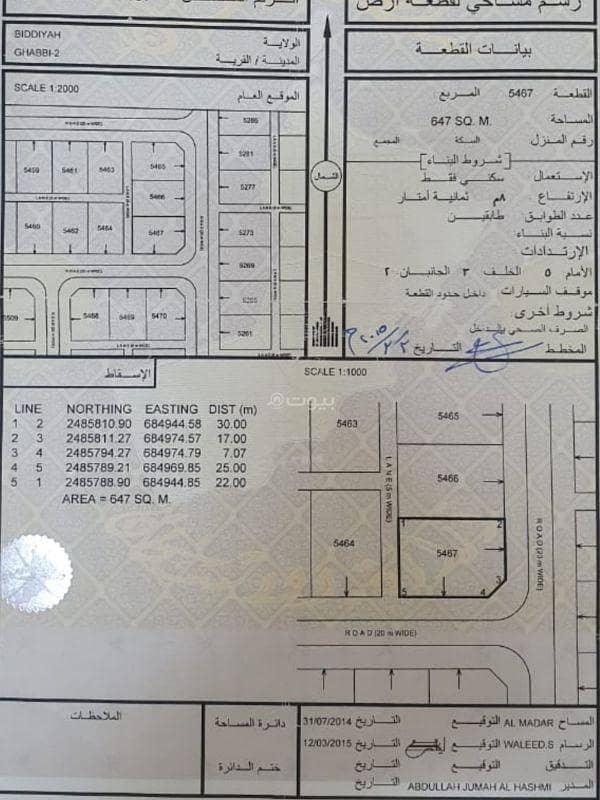 رسم مساحي لقطعة أرض
بيانات القطعة
القطعة 5467 المربع
المساحة 647 SQ. M.
رقم المنزل السكة المجمع
شروط البناء
الإستعمال سكني فقط
الإرتفاع ٨م ثمانية أمتار
عدد الطوابق طابقين
نسبة البناء:
الإرتدادات
الأمام ٥ الخلف ٣ الجانبان ٢
موقف السيارات داخل حدود القطعة
شروط أخرى:
الصرف الصحي بالداخل
المخطط التاريخ
BIDDIYAH الولاية
GHABBI-2 المدينة / القرية
SCALE 1:2000 الموقع العام
5285
5281
5277
5273
5269
5265
5261
5459 5461 5463 5465
5466
5460 5462 5464 5467
5509 5468 5469 5470
الشمال
الإسقاط
SCALE 1:1000
LINE NORTHING EASTING DIST (m)
1 2 2485810.90 684944.58 30.00
2 3 2485811.27 684974.57 17.00
3 4 2485794.27 684974.79 7.07
4 5 2485789.21 684969.85 25.00
5 1 2485788.90 684944.85 22.00
AREA = 647 SQ. M.
بيوت
5463
5465
5466
5464
5467
1 2
3
4
5
LANE (5 m WIDE)
ROAD (20 m WIDE)
ROAD (20 m WIDE)
الملاحظات
دائرة المساحة
ختم الدائرة
المساح AL MADAR التوقيع التاريخ 31/07/2014
الرسام WALEED.S التوقيع التاريخ 12/03/2015
التدقيق التوقيع التاريخ
المدير ABDULLAH JUMAH AL HASHMI التاريخ